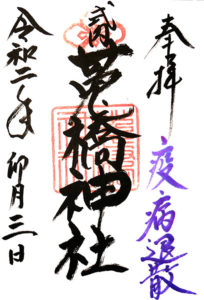 奉拝
疫病退散
貳
茅橋神社
令和二年 卯月三日